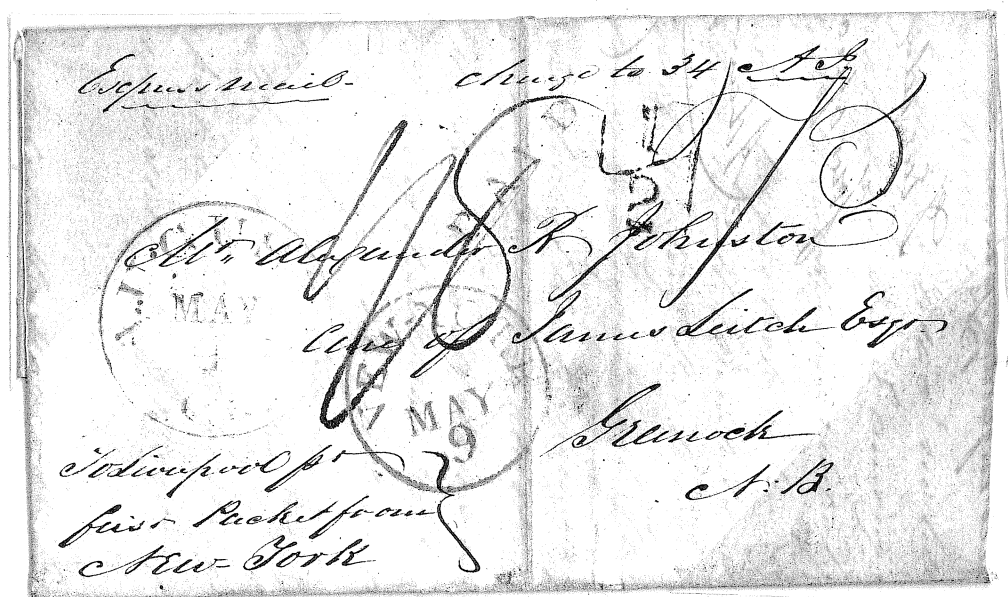 Express mail - charge to 34 A J
PAID
Mr. Alexander R. Johnston
Care of James Leitch Esqr
Greenock
N. B.
MAY
NEW-
MAY
9
To Liverpool pr
first Packet from
New-York